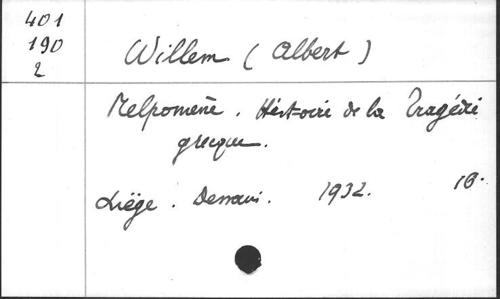 401
190
2
Willem (Albert)
Melpomène. Histoire de la Tragédie
grecque.
Liège. Dessain. 1932. 16.